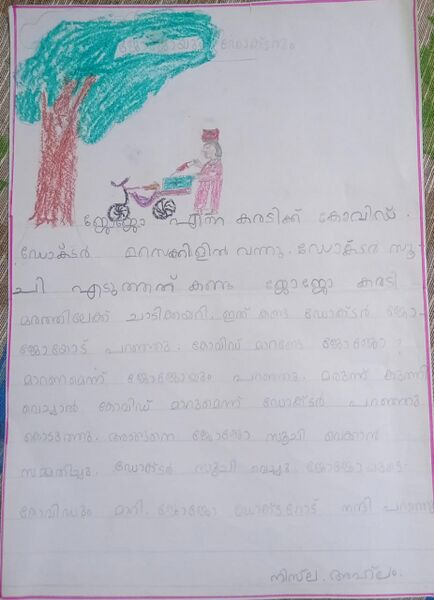 ജോജോയും ഡോക്ടറും
ജോജോ എന്ന കരടിക്ക് കോവിഡ്.
ഡോക്ടർ മറസക്കിളിൽ വന്നു. ഡോക്ടർ സൂ-
ചി എടുത്തത് കണ്ടു ജോജോ കരടി
മരത്തിലേക്ക് ചാടിക്കയറി. ഇത് കണ്ട ഡോക്ടർ ജോ-
ജോയോട് പറഞ്ഞു. കോവിഡ് മാറണ്ടേ ജോജോ?
മാറണമെന്ന് ജോജോയും പറഞ്ഞു. മരുന്ന് കുത്തി
വെച്ചാൽ കോവിഡ് മാറുമെന്ന് ഡോക്ടർ പറഞ്ഞു
കൊടുത്തു. അങ്ങനെ ജോജോ സൂചി വെക്കാൻ
സമ്മതിച്ചു. ഡോക്ടർ സൂചി വെച്ചു. ജോജോയുടെ
കോവിഡും മാറി. ജോജോ ഡോക്ടറോട് നന്ദി പറഞ്ഞു